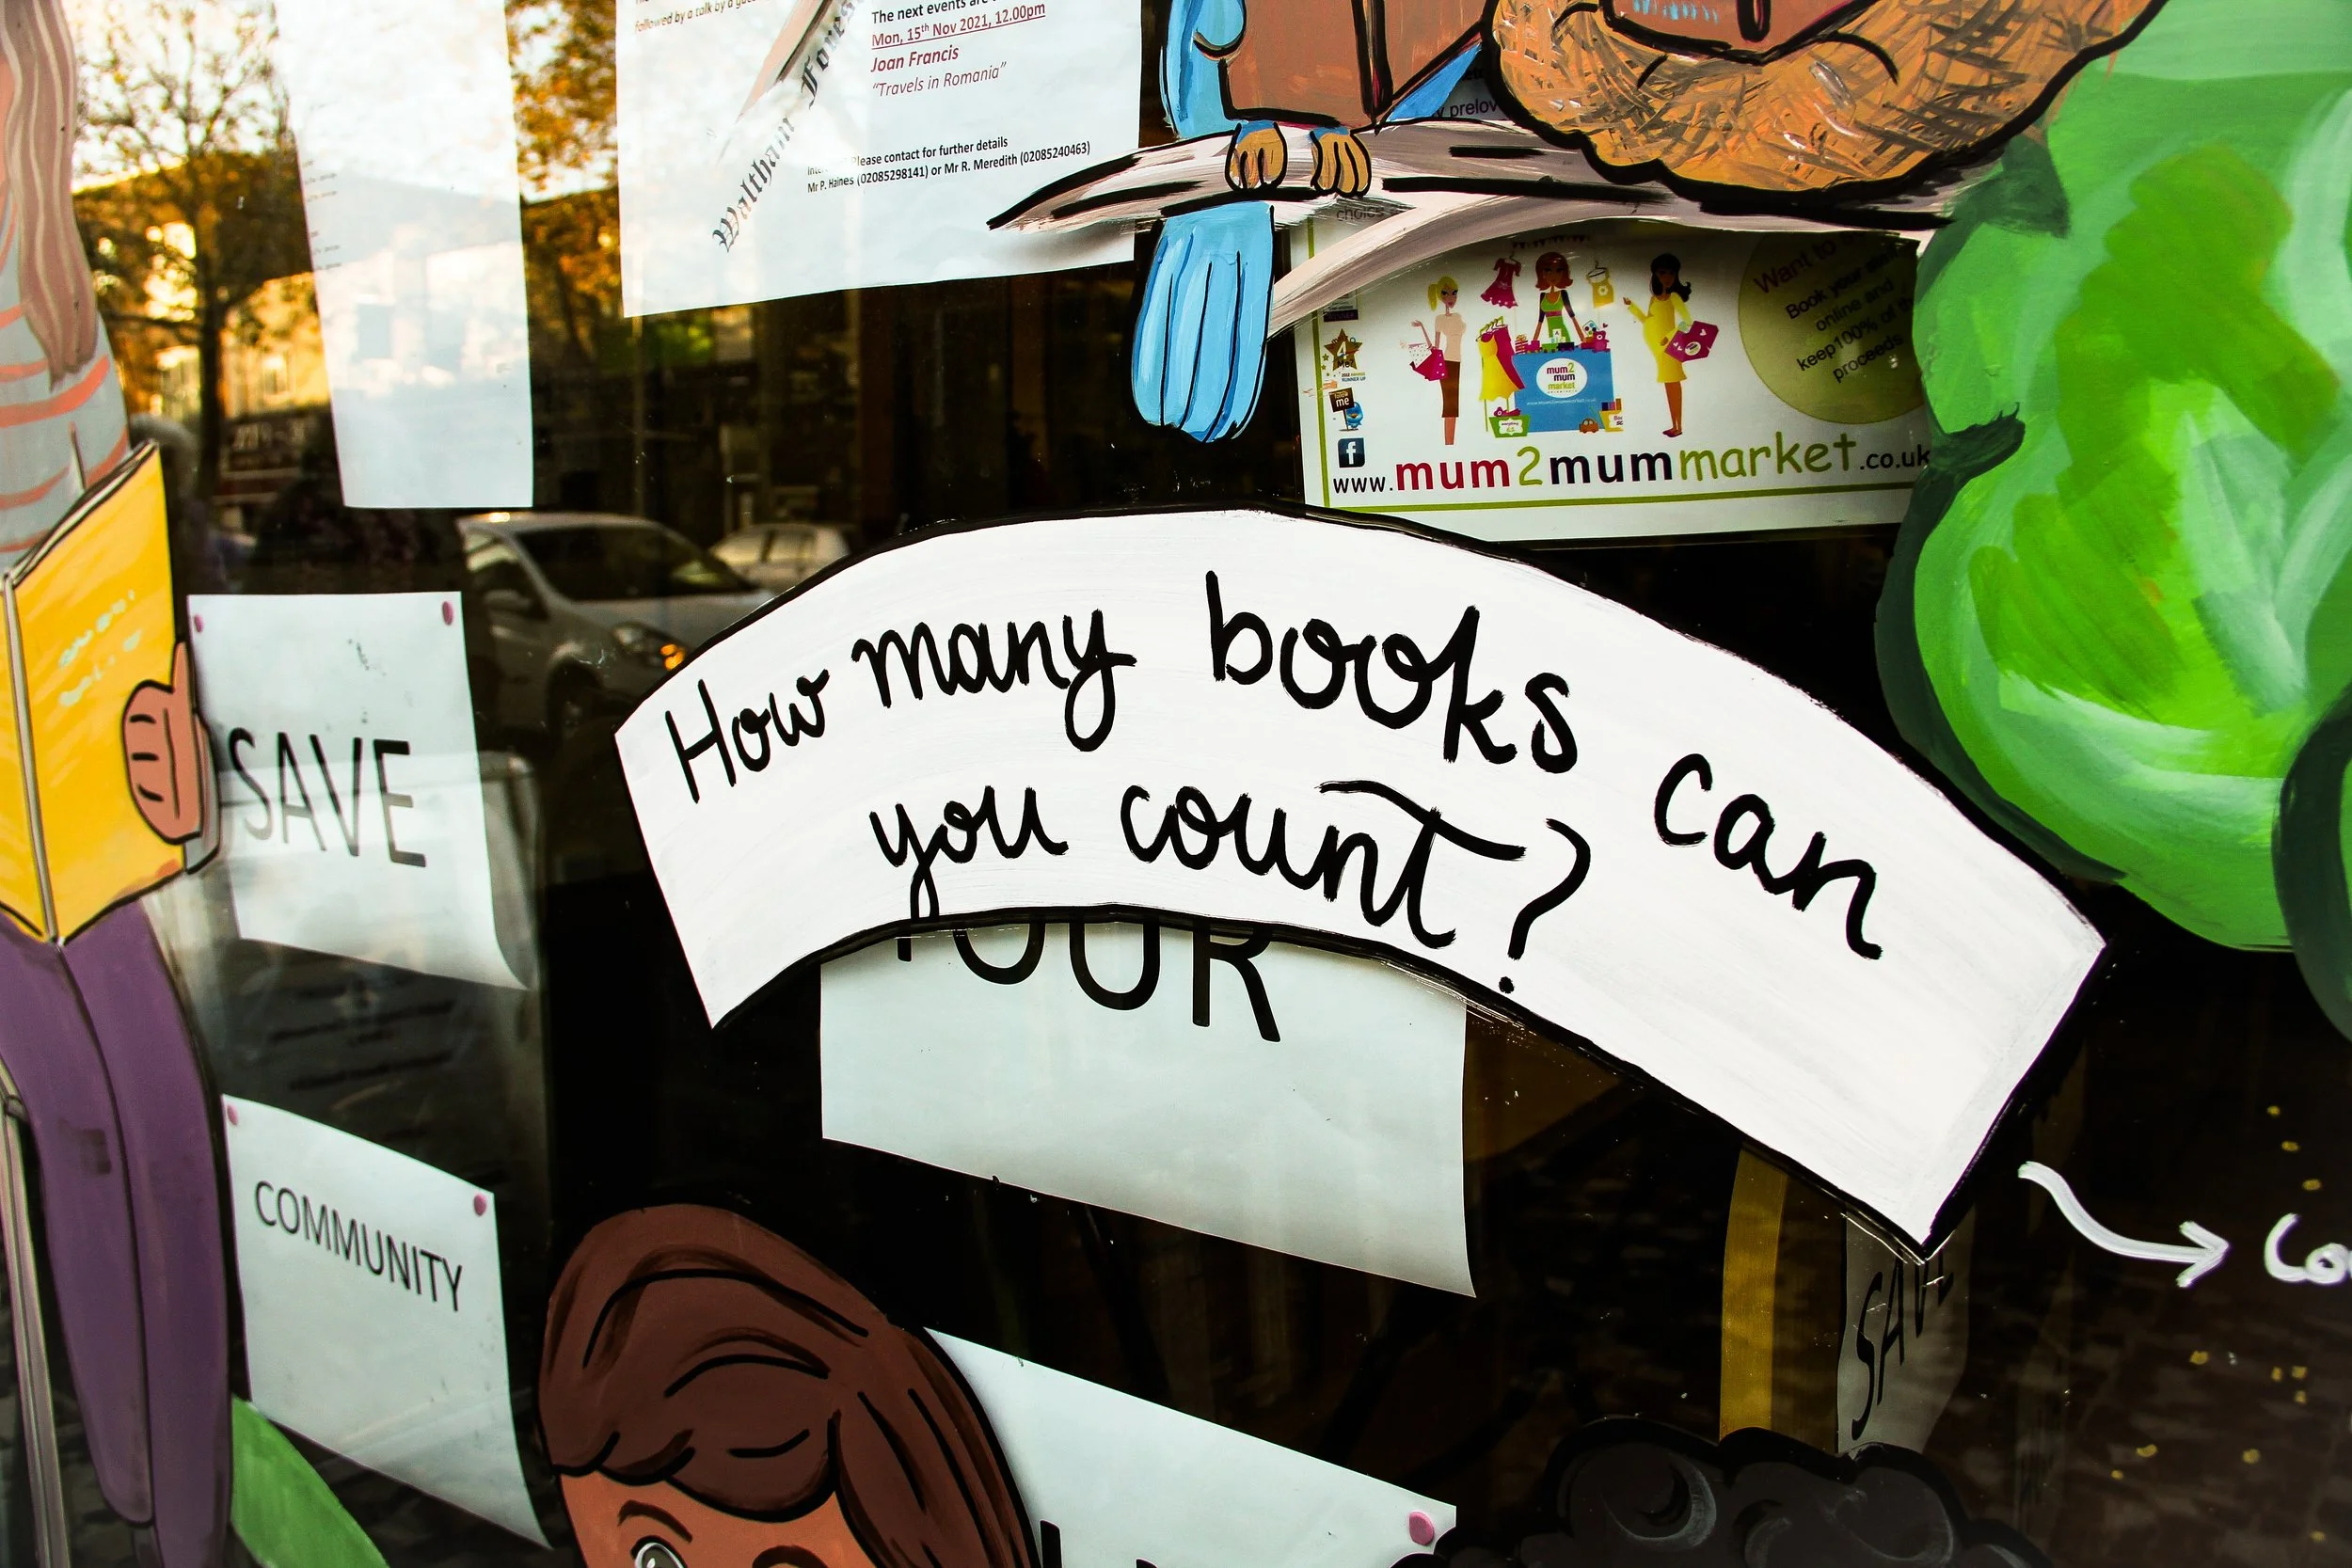 followed by a talk by a
The next events are
Mon, 15th Nov 2021, 12.00pm
Joan Francis
"Travels in Romania"
Waltham Forest
Please contact for further details
Mr P. Haines (02085298141) or Mr R. Meredith (02085240463)
prelov
choice
Want to
Book your
online and
keep 100% of
proceeds
mum2
mum
market
follow
me
f
www.mum2mummarket.co.uk
How many books can
you count?
SAVE
OUR
COMMUNITY
SAVE
Co